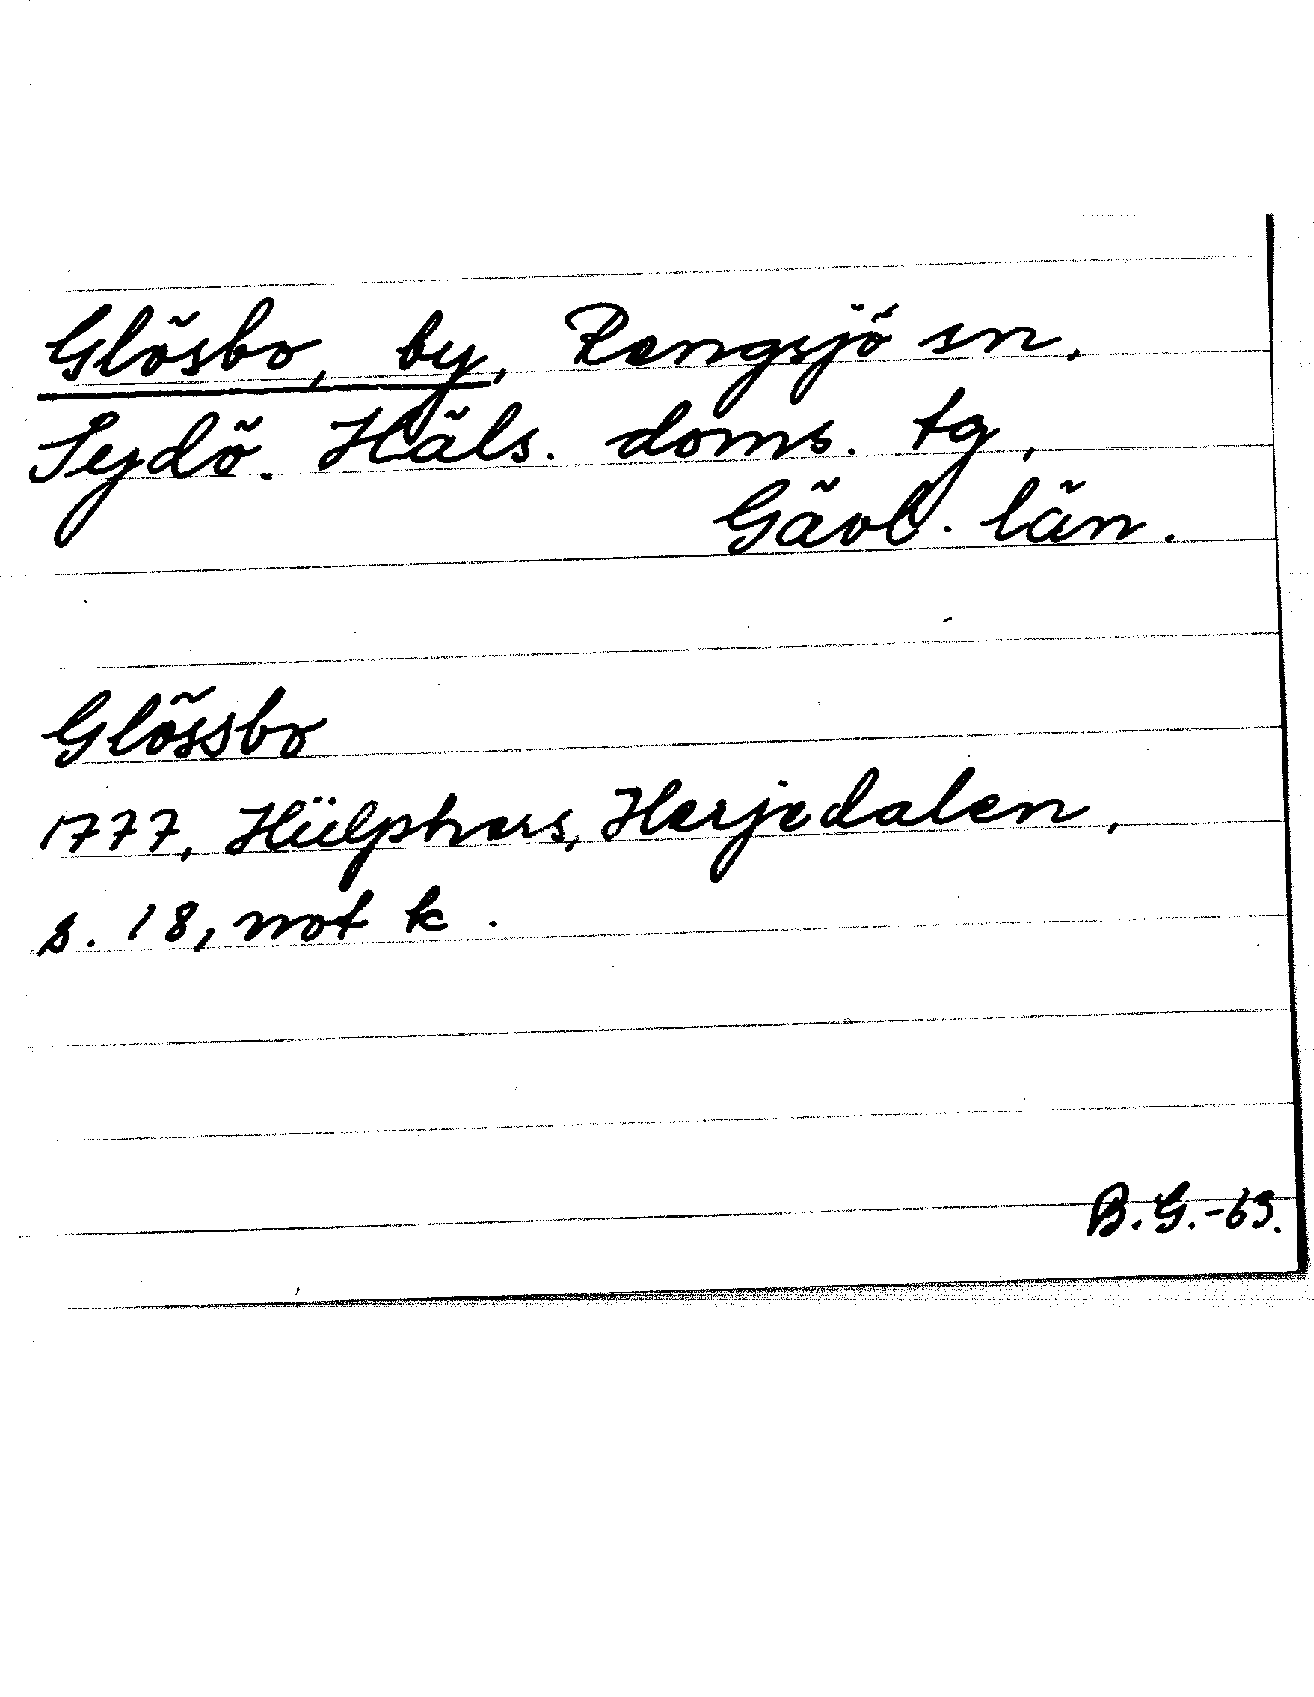 Glösbo, by, Rengsjö sn.
Sydö. Häls. doms. tg,
Gävl. län.
Glössbo
1777, Hülphers, Herjedalen,
s. 18, not k.
B.G.-63.